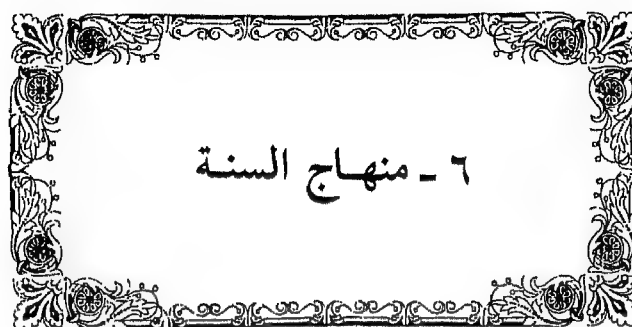 ٦ ـ منهاج السنة